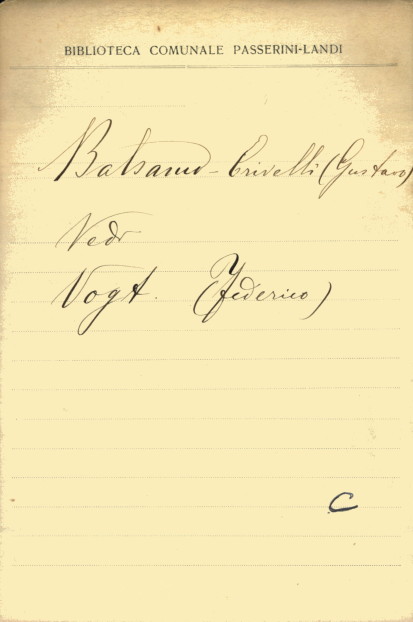 BIBLIOTECA COMUNALE PASSERINI-LANDI
Balsamo-Crivelli (Gustavo)
Vedi
Vogt. (Federico)
C